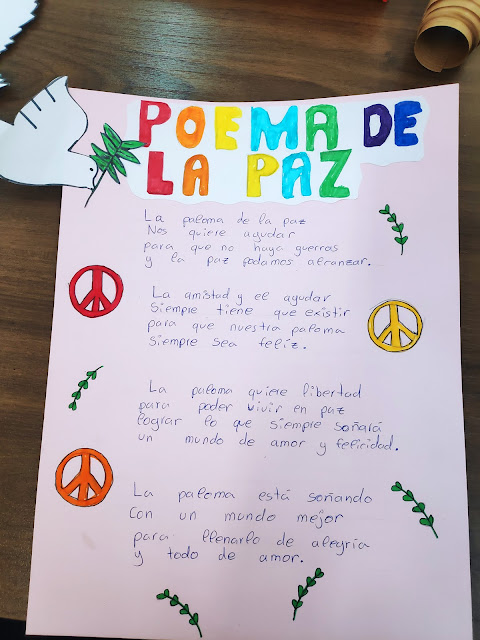 POEMA DE
LA PAZ
La paloma de la paz
Nos quiere ayudar
para que no haya guerras
y la paz podamos alcanzar.
La amistad y el ayudar
Siempre tiene que existir
para que nuestra paloma
siempre sea feliz.
La paloma quiere libertad
para poder vivir en paz
lograr lo que siempre soñará
un mundo de amor y felicidad.
La paloma está soñando
Con un mundo mejor
para llenarlo de alegría
y todo de amor.